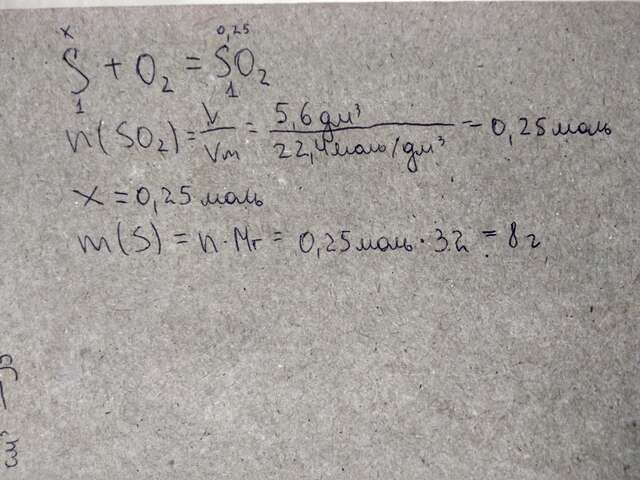 x 0,25
S + O₂ = SO₂
1 1
n(SO₂) = V/Vm = 5,6 дм³/22,4 моль/дм³ = 0,25 моль
x = 0,25 моль
m(S) = n · Mr = 0,25 моль · 32 = 8 г
см³